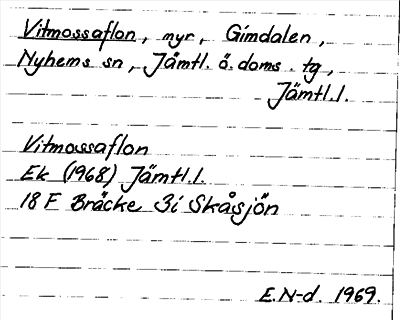 Vitmossaflon, myr, Gimdalen,
Nyhems sn, Jämtl. ö. doms. tg,
Jämtl.l.
Vitmossaflon
Ek (1968) Jämtl.l.
18 F Bräcke 3i Skåsjön
E.N-d. 1969.